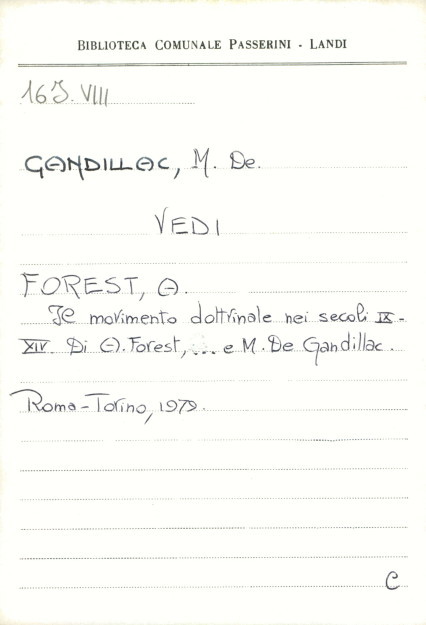 BIBLIOTECA COMUNALE PASSERINI - LANDI
16J. VIII
GANDILLAC, M. De.
VEDI
FOREST, A.
Il movimento dottrinale nei secoli IX-
XIV. Di A. Forest, ... e M. De Gandillac.
Roma-Torino, 1979.
C